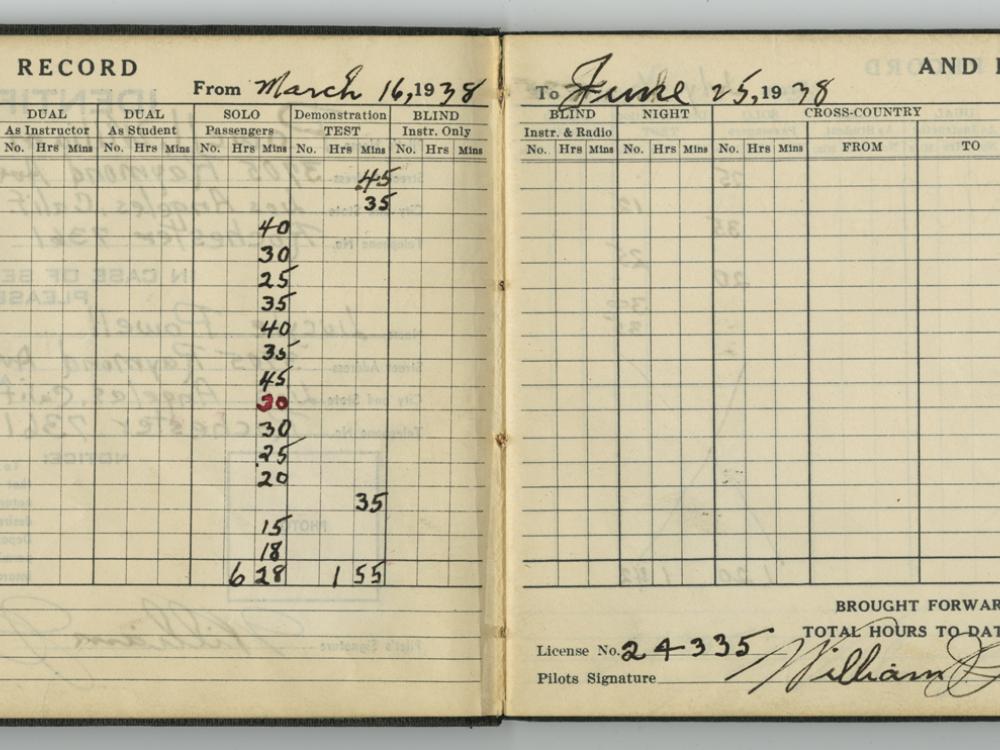 RECORD
From March 16, 1938
DUAL As Instructor DUAL As Student SOLO Passengers Demonstration TEST BLIND Instr. Only
No. Hrs Mins No. Hrs Mins No. Hrs Mins No. Hrs Mins No. Hrs Mins
45
35
40
30
25
35
40
35
45
30
30
25
20
35
15
18
6 28 1 55
AND
To June 25, 1938
BLIND Instr. & Radio NIGHT CROSS-COUNTRY
No. Hrs Mins No. Hrs Mins No. Hrs Mins FROM TO
BROUGHT FORWAR
TOTAL HOURS TO DAT
License No. 24335
Pilots Signature William